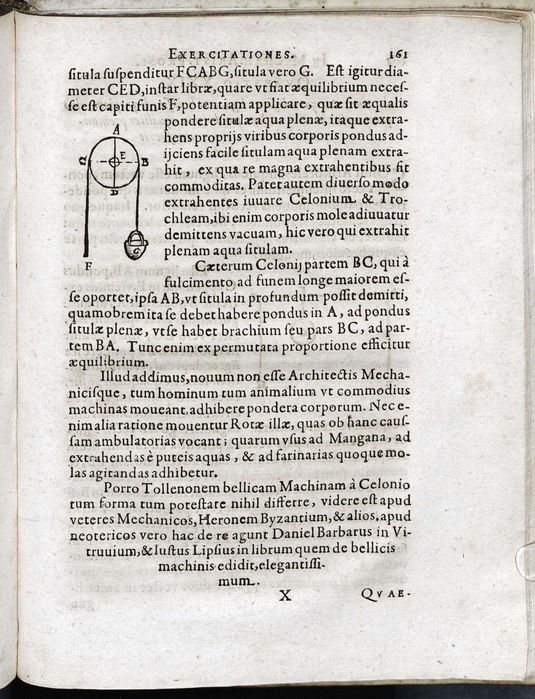 EXERCITATIONES. 161
situla suspenditur FCABG, situla vero G. Est igitur dia-
meter CED, instar libræ, quare vt fiat æquilibrium neces-
se est capiti funis F, potentiam applicare, quæ sit æqualis
pondere situlæ aqua plenæ, itaque extra-
hens proprijs viribus corporis pondus ad-
ijciens facile situlam aqua plenam extra-
hit, ex qua re magna extrahentibus fit
commoditas. Patet autem diuerso modo
extrahentes iuuare Celonium & Tro-
chleam, ibi enim corporis mole adiuuatur
demittens vacuam, hic vero qui extrahit
plenam aqua situlam.
A
C E B
D
G
F
Cæterum Celonij partem BC, qui à
fulcimento ad funem longe maiorem es-
se oportet, ipsa AB, vt situla in profundum possit demitti,
quamobrem ita se debet habere pondus in A, ad pondus
situlæ plenæ, vt se habet brachium seu pars BC, ad par-
tem BA. Tunc enim ex permutata proportione efficitur
æquilibrium.
Illud addimus, nouum non esse Architectis Mecha-
nicisque, tum hominum tum animalium vt commodius
machinas moueant. adhibere pondera corporum. Nec e-
nim alia ratione mouentur Rotæ illæ, quas ob hanc caus-
sam ambulatorias vocant; quarum vsus ad Mangana, ad
extrahendas è puteis aquas, & ad farinarias quoque mo-
las agitandas adhibetur.
Porro Tollenonem bellicam Machinam à Celonio
tum forma tum potestate nihil differre, videre est apud
veteres Mechanicos, Heronem Byzantium, & alios. apud
neotericos vero hac de re agunt Daniel Barbarus in Vi-
truuium, & Iustus Lipsius in librum quem de bellicis
machinis edidit, elegantissi-
mum.
X QVAE-